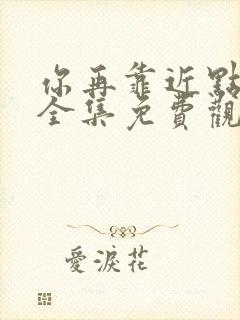 你再靠近點
全集免費觀
愛淚花